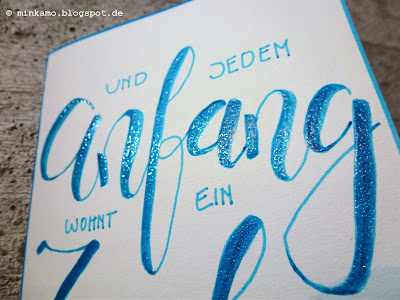 © minkamo.blogspot.de
UND JEDEM
anfang
WOHNT EIN